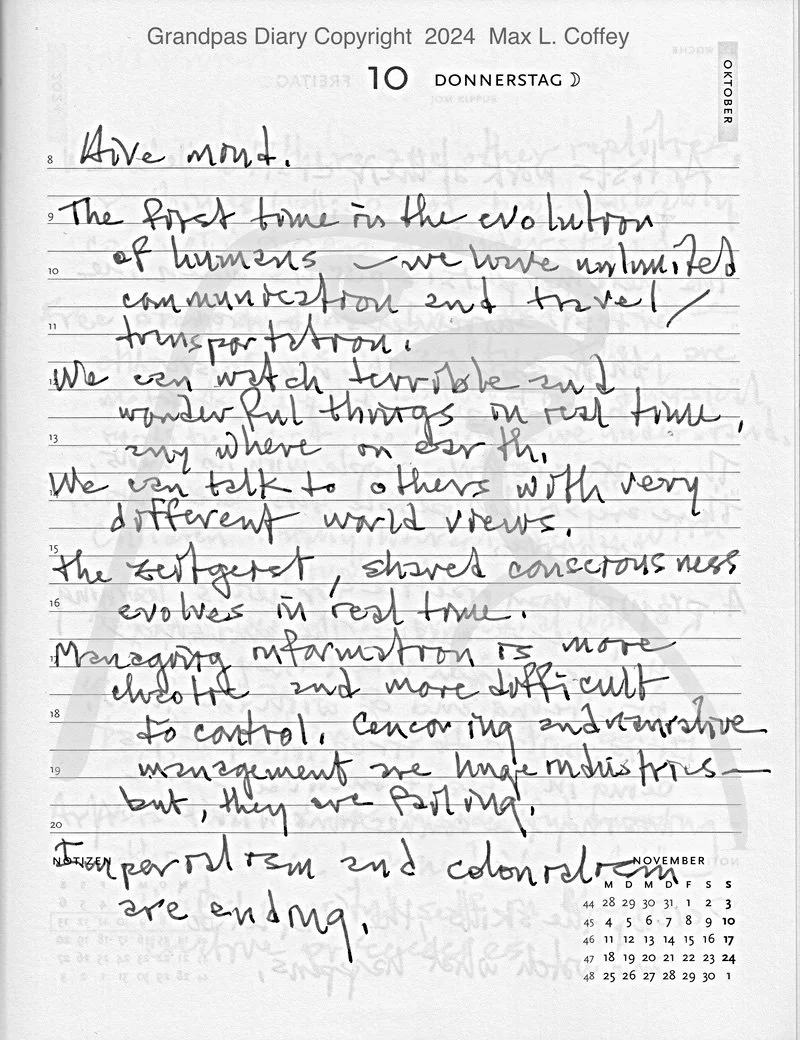 Grandpas Diary Copyright 2024 Max L. Coffey
10 DONNERSTAG
OKTOBER
8 Hive mind.
9 The first time in the evolution
of humans — we have unlimited
10
communication and travel /
11
transportation.
We can watch terrible and
wonderful things in real time,
13
any where on earth.
We can talk to others with very
different world views.
15
the zeitgeist, shared consciousness
16
evolves in real time.
Managing information is more
chaotic and more difficult
18
to control. Cencoring and narrative
19
management are huge industries —
but, they are failing.
20
Imperialism and colonialism
are ending.
NOTIZEN
NOVEMBER
M D M D F S S
44 28 29 30 31 1 2 3
45 4 5 6 7 8 9 10
46 11 12 13 14 15 16 17
47 18 19 20 21 22 23 24
48 25 26 27 28 29 30 1